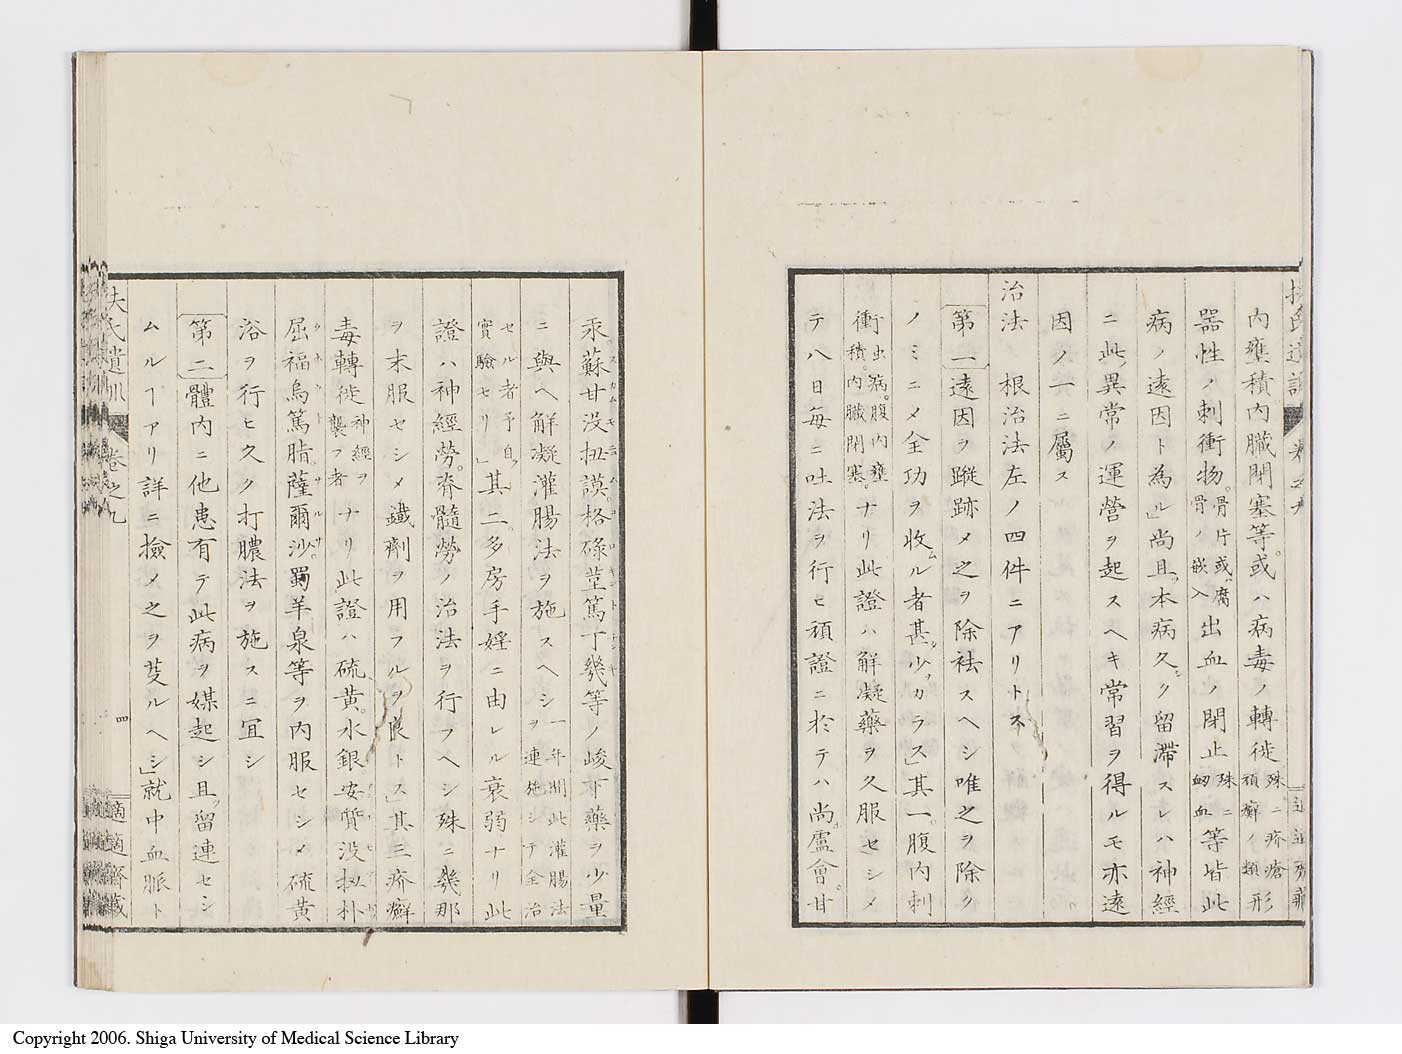 内壅積内臓閉塞等。或ハ病毒ノ轉徙殊ニ疥瘡頑癬ノ類形
器性ノ刺衝物。骨片或ハ腐骨ノ嵌入出血ノ閉止殊ニ衄血等皆此
病ノ遠因ト為ル」尚且ツ本病久シク留滞スレハ神經
ニ此異常ノ運營ヲ起スヘキ常習ヲ得ルモ亦遠
因ノ一ニ屬ス
治法ノ根治法左ノ四件ニアリトス
第一遠因ヲ蹤跡メ之ヲ除祛スヘシ唯之ヲ除ク
ノミニメ全功ヲ收ムル者甚タ少ナカラス」其一。腹内刺
衝虫病。腹内壅積。内臓閉塞ナリ此證ハ解凝藥ヲ久服セシメ
テ八日毎ニ吐法ヲ行ヒ頑證ニ於テハ尚盧會。甘
汞蘇甘没扭謨格碌莖篤丁幾等ノ峻下藥ヲ少量
ニ與ヘ解凝灌腸法ヲ施スヘシ一年間此灌腸法ヲ連施シテ全治
セル者予自ラ實驗セリ」其二。多房手婬ニ由レル衰弱ナリ此
證ハ神經勞。脊髓勞ノ治法ヲ行フヘシ殊ニ幾那
ヲ末服セシメ鐵劑ヲ用フルヲ良トス」其三疥癬
毒轉徙神經ヲ襲フ者ナリ此證ハ硫黄。水銀。安質没扭朴
屈福烏篤脂。薩爾沙。蜀羊泉等ヲ内服セシメ硫黄
浴ヲ行ヒ久ク打膿法ヲ施スニ冝シ
第二體内ニ他患有テ此病ヲ媒起シ且ツ留連セシ
ムルヿアリ詳ニ撿メ之ヲ芟ルヘシ」就中血脈ト
扶氏遺訓 卷之九 四 適適齋藏
Copyright 2006. Shiga University of Medical Science Library